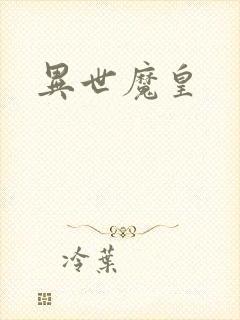 異世魔皇
冷葉